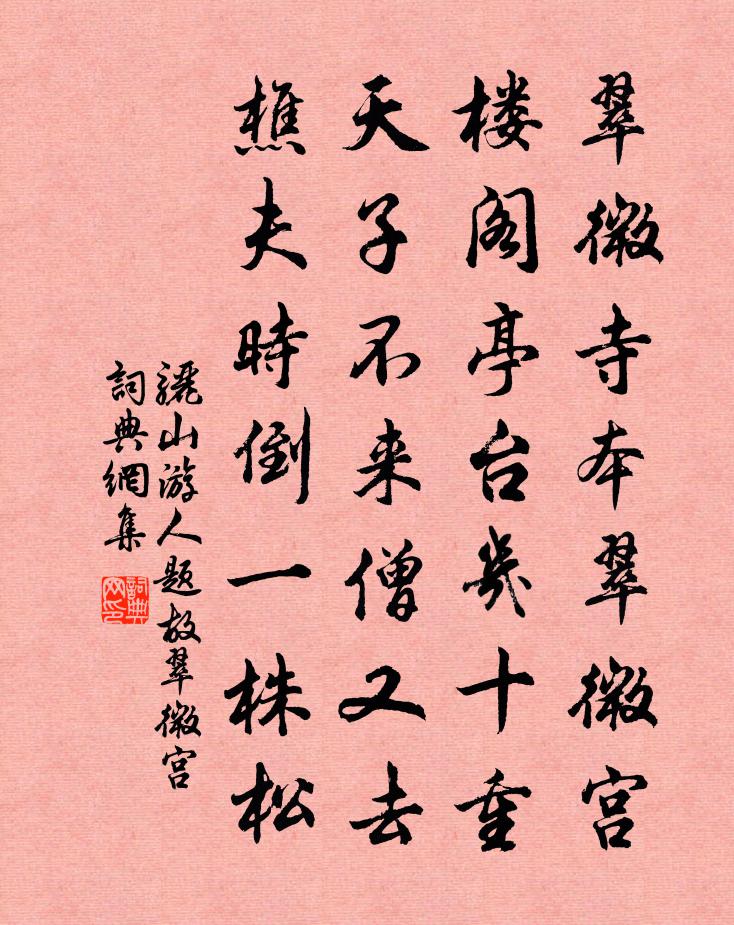 翠微寺本翠微宫
楼阁亭台幾十重
天子不来僧又去
樵夫時倒一株松
驪山游人题故翠微宫
詞典網集
詞典
网印